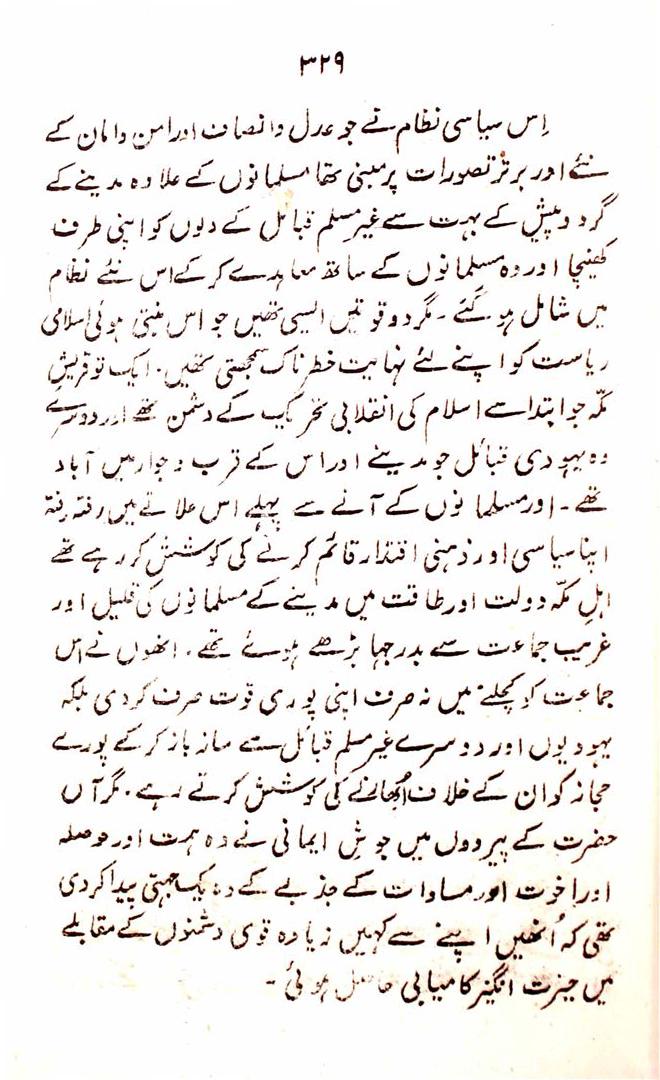 ۳۲۹
اِس سیاسی نظام نے جو عدل و انصاف اور امن و امان کے
نئے اور برتر تصورات پر مبنی تھا مسلمانوں کے علاوہ مدینے کے
گرد و پیش کے بہت سے غیر مسلم قبائل کے دلوں کو اپنی طرف
کھینچا اور وہ مسلمانوں کے ساتھ معاہدے کر کے اس نئے نظام
میں شامل ہو گئے ۔ مگر دو قوتیں ایسی تھیں جو اس بنتی ہوئی اسلامی
ریاست کو اپنے لئے نہایت خطرناک سمجھتی تھیں ۔ ایک تو قریشِ
مکّہ جو ابتدا سے اسلام کی انقلابی تحریک کے دشمن تھے اور دوسرے
وہ یہودی قبائل جو مدینے اور اس کے قرب و جوار میں آباد
تھے ۔ اور مسلمانوں کے آنے سے پہلے اس علاقے میں رفتہ رفتہ
اپنا سیاسی اور ذہنی اقتدار قائم کرنے کی کوشش کر رہے تھے
اہلِ مکّہ دولت اور طاقت میں مدینے کے مسلمانوں کی قلیل اور
غریب جماعت سے بدرجہا بڑھے ہوئے تھے ۔ انھوں نے اس
جماعت کو کچلنے میں نہ صرف اپنی پوری قوت صرف کر دی بلکہ
یہودیوں اور دوسرے غیر مسلم قبائل سے ساز باز کر کے پورے
حجاز کو ان کے خلاف اُبھارنے کی کوشش کرتے رہے ۔ مگر آں
حضرت کے پیرووں میں جوشِ ایمانی نے وہ ہمت اور حوصلہ
اور اخوت اور مساوات کے جذبے کے وہ یک جہتی پیدا کر دی
تھی کہ اُنھیں اپنے سے کہیں زیادہ قوی دشمنوں کے مقابلے
میں حیرت انگیز کامیابی حاصل ہوئی ۔